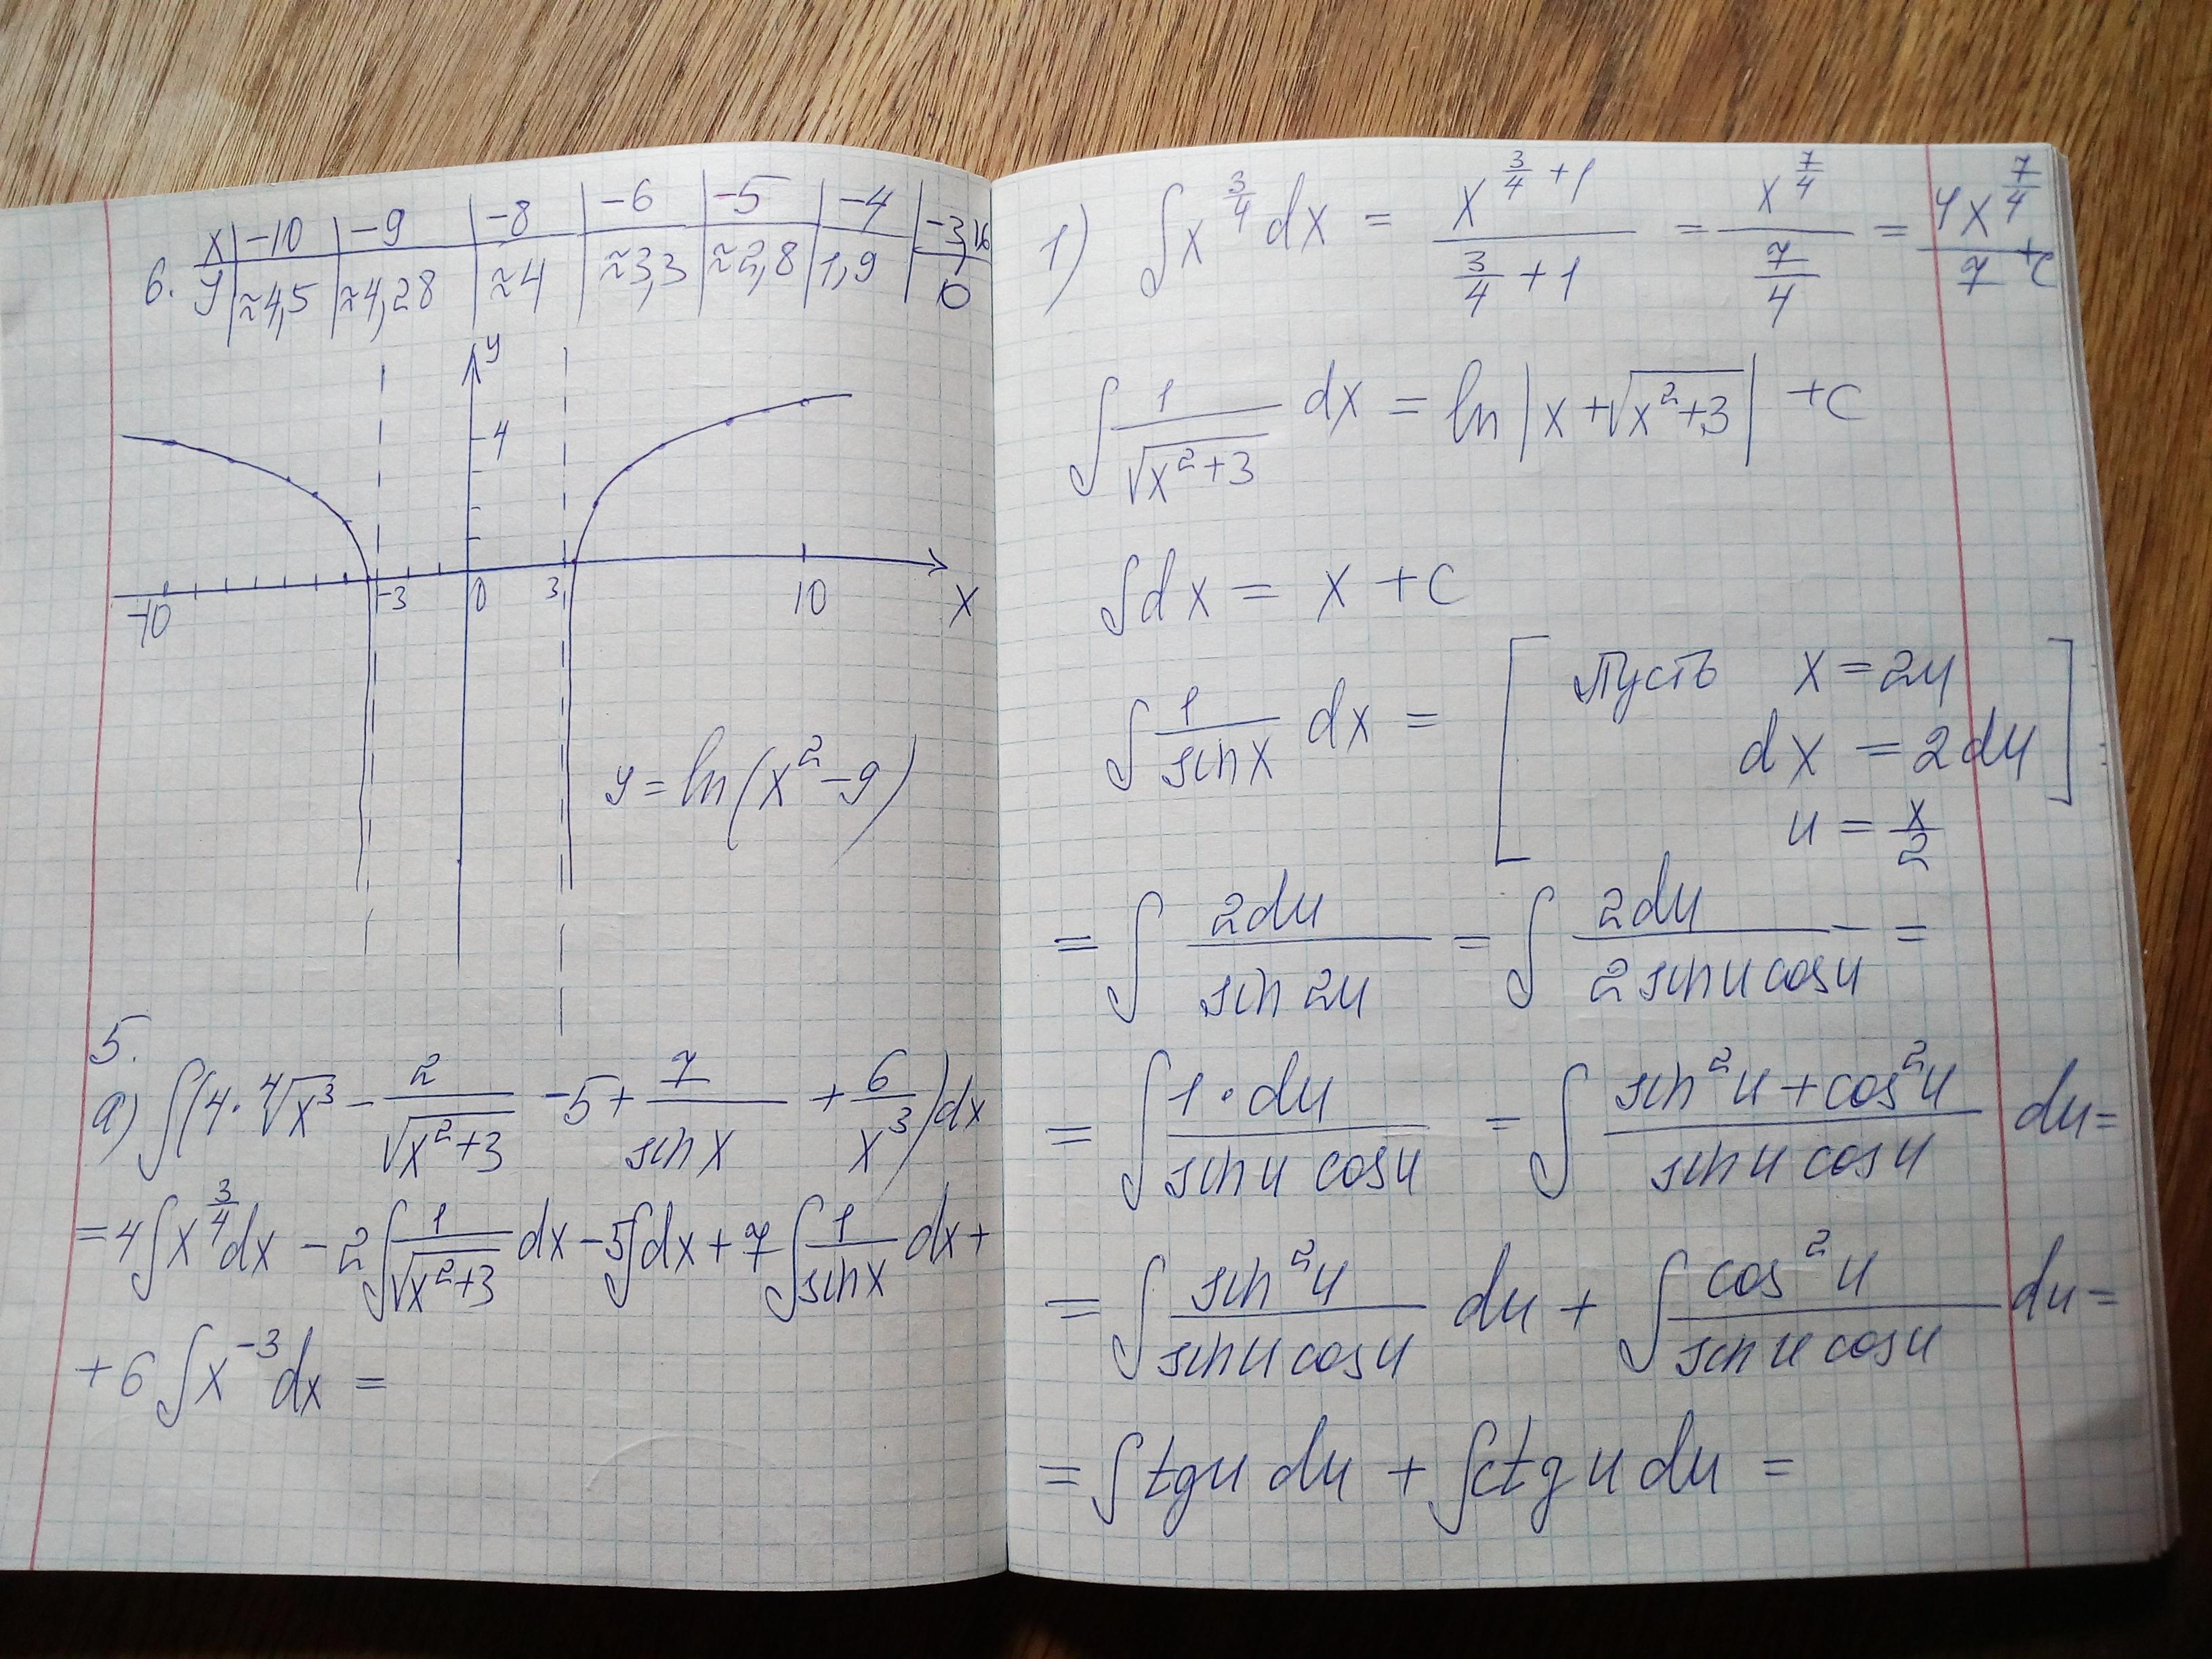 6. x | -10 | -9 | -8 | -6 | -5 | -4 | -3,16
y | ≈4,5 | ≈4,28 | ≈4 | ≈3,3 | ≈2,8 | 1,9 | 0
y
4
-10 -3 0 3 10 x
y = ln(x² - 9)
5.
a) ∫(4·⁴√x³ - 2/√(x²+3) - 5 + 7/sin x + 6/x³)dx
= 4∫x^(3/4)dx - 2∫1/√(x²+3) dx - 5∫dx + 7∫1/sin x dx +
+ 6∫x⁻³dx =
1) ∫x^(3/4)dx = x^(3/4 + 1)/(3/4 + 1) = x^(7/4)/(7/4) = 4x^(7/4)/7 + c
∫1/√(x²+3) dx = ln|x + √(x²+3)| + c
∫dx = x + c
∫1/sin x dx = [Пусть x = 2u
dx = 2du]
u = x/2
= ∫2du/sin 2u = ∫2du/(2 sin u cos u) =
= ∫1·du/(sin u cos u) = ∫(sin²u + cos²u)/(sin u cos u) du =
= ∫sin²u/(sin u cos u) du + ∫cos²u/(sin u cos u) du =
= ∫tg u du + ∫ctg u du =